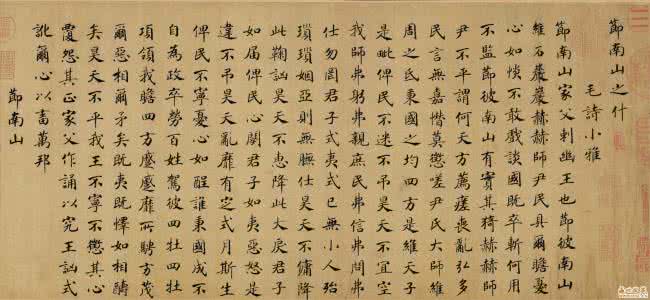 節南山之什
毛詩小雅
節南山家父刺幽王也節彼南山
維石巖巖赫赫師尹民具爾瞻憂
心如惔不敢戲談國既卒斬何用
不監節彼南山有實其猗赫赫師
尹不平謂何天方薦瘥喪亂弘多
民言無嘉憯莫懲嗟尹氏大師維
周之氐秉國之均四方是維天子
是毗俾民不迷不弔昊天不宜空
我師弗躬弗親庶民弗信弗問弗
仕勿罔君子式夷式已無小人殆
瑣瑣姻亞則無膴仕昊天不傭降
此鞠訩昊天不惠降此大戾君子
如届俾民心闋君子如夷惡怒是
違不弔昊天亂靡有定式月斯生
俾民不寧憂心如酲誰秉國成不
自為政卒勞百姓駕彼四牡四牡
項領我瞻四方蹙蹙靡所騁方茂
爾惡相爾矛矣既夷既懌如相醻
矣昊天不平我王不寧不懲其心
覆怨其正家父作誦以究王訩式
訛爾心以畜萬邦
節南山